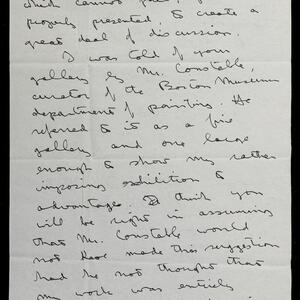 which cannot
properly presented, to create a
great deal of discussion.
I was told of your
gallery by Mr. Constable,
curator of the Boston Museum
department of painting. He
referred to it as a fine
gallery and one large
enough to show my rather
imposing exhibition to
advantage. I think you
will be right in assuming
that Mr. Constable would
not have made this suggestion
had he not thought that
my work was entirely